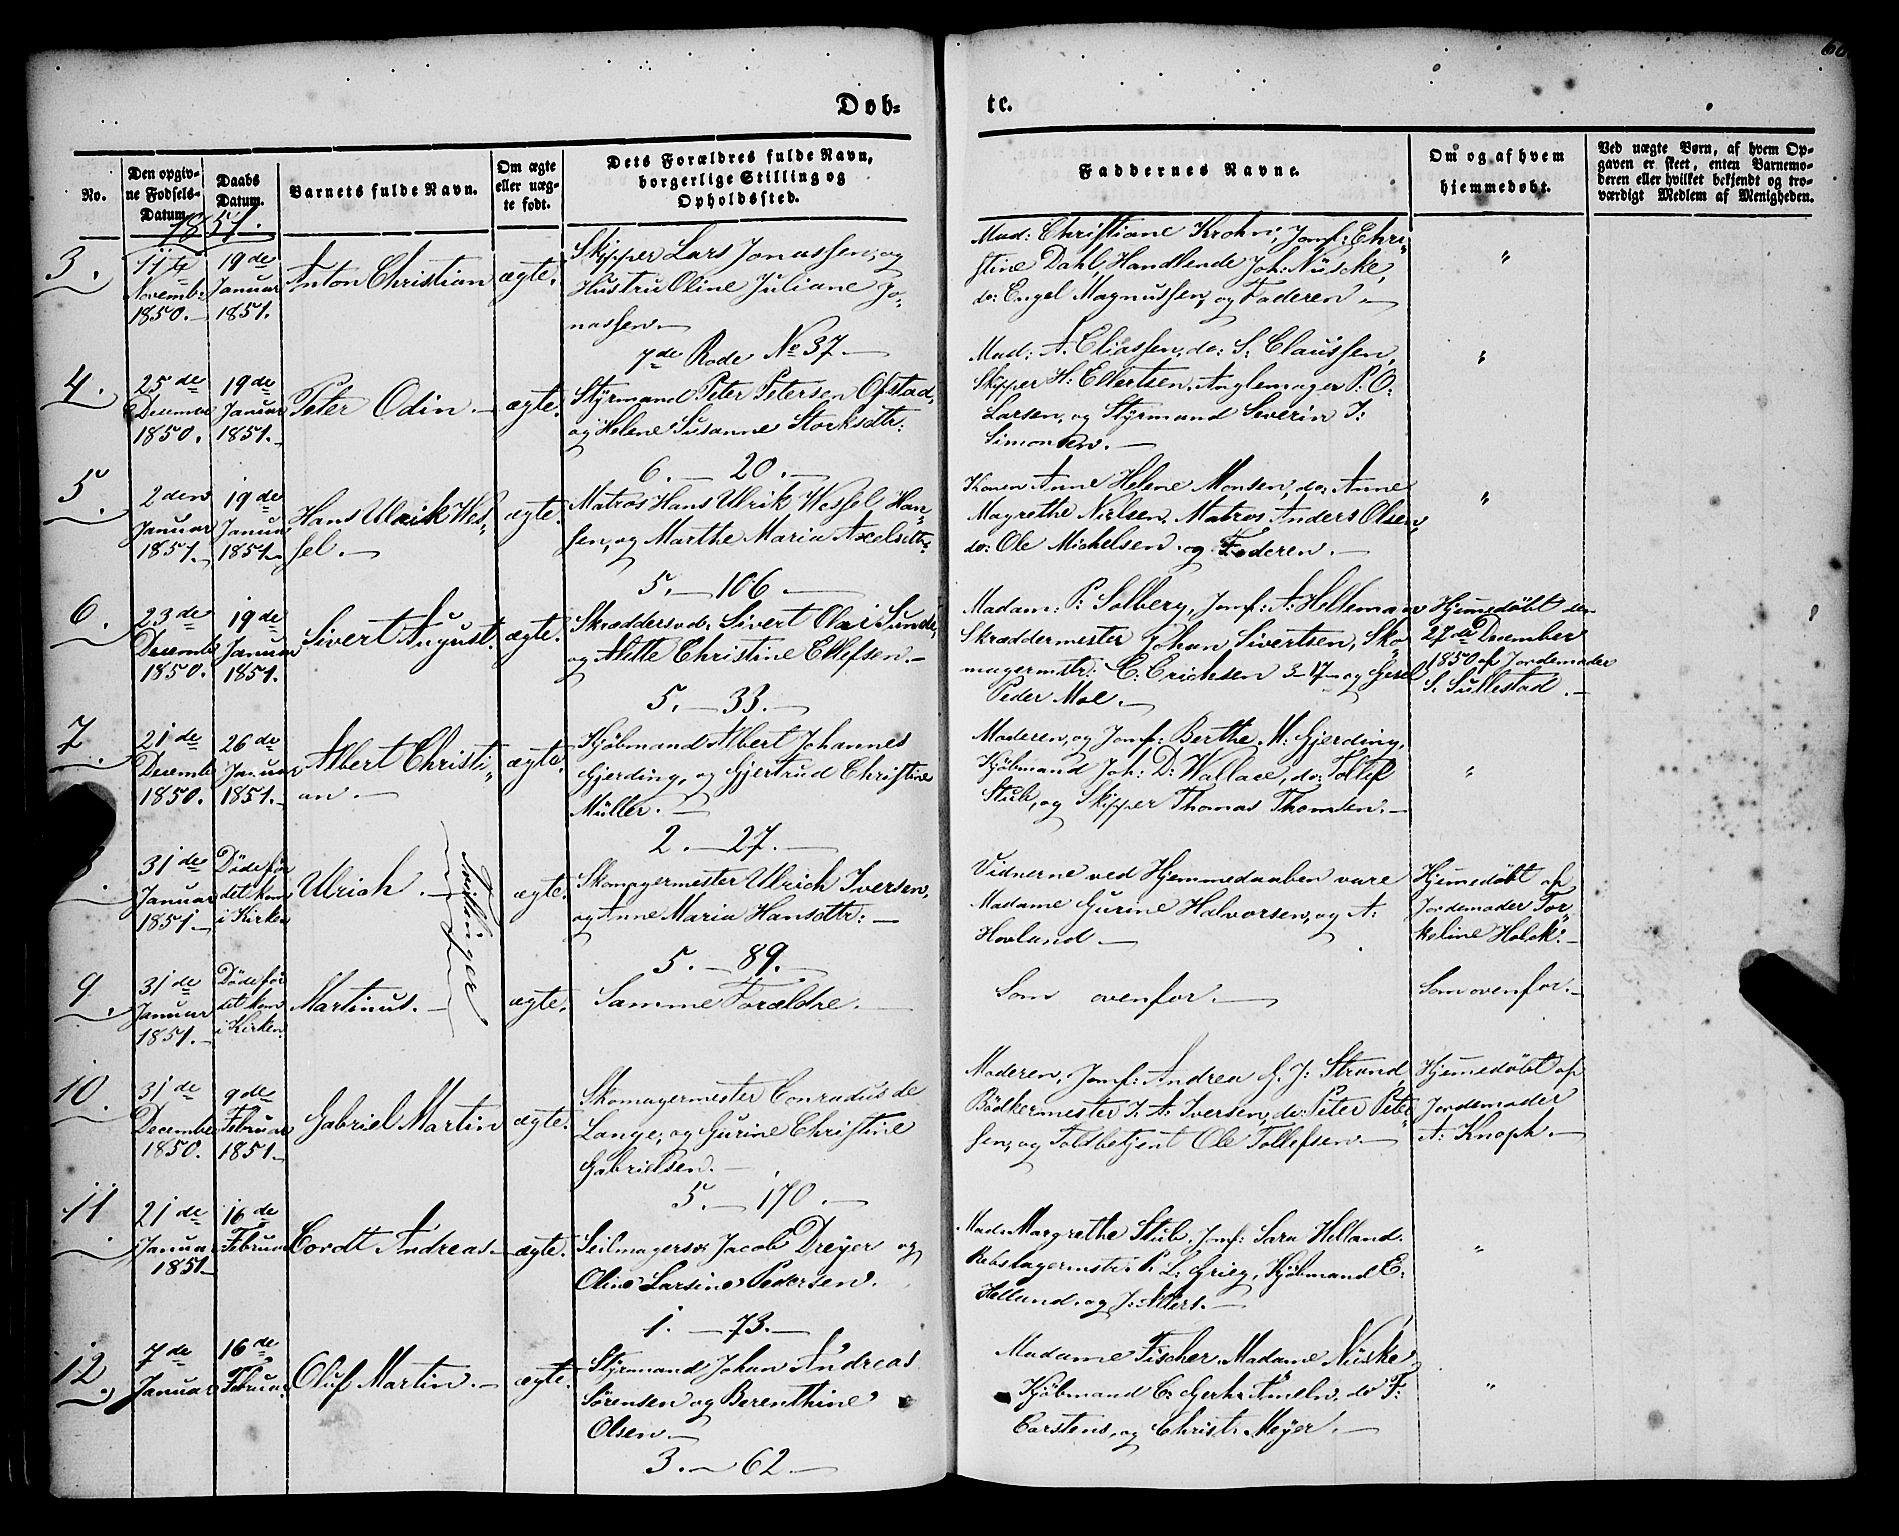 Døb-
te.
No.
Den opgiv-
ne Fødsels-
Datum.
Daabs
Datum.
Barnets fulde Navn.
Om ægte
eller uæg-
te født.
Dets Forældres fulde Navn,
borgerlige Stilling og
Opholdssted.
Faddernes Navne.
Om og af hvem
hjemmedøbt.
Ved uægte Børn, af hvem Op-
gaven er skeet, enten Barnemo-
deren eller hvilket bekjendt og tro-
værdigt Medlem af Menigheden.
1851.
3.
11te
November
1850.
19de
Januar
1851.
Anton Christian
ægte.
Skipper Lars Jonassen, og
Hustru Oline Juliane Jo-
nassen.
7de Rode No 37.
Mad: Christiane Krohn, Jomf: Chri-
stine Dahl, Handlende Joh: Nüscke,
do: Engel Magnussen, og Faderen.
"
4.
25de
December
1850.
19de
Januar
1851.
Peter Odin.
ægte.
Styrmand Peter Petersen Ofstad,
og Helene Susanne Storksdtr:
6. — 20.
Mad: A. Eliassen, do: S. Claussen,
Skipper H: Ellertsen, Anglemager P. O:
Larsen, og Styrmand Severin J:
Simonsen.
"
5.
2den
Januar
1851.
19de
Januar
1851.
Hans Ulrik Wes-
sel.
ægte.
Matros Hans Ulrik Wessel Han-
sen, og Marthe Maria Axelsdtr:
5. — 106.
Konen Anne Helene Monsen, do: Anne
Magrethe Nielsen, Matros Anders Olsen,
do: Ole Michelsen og Faderen.
"
6.
23de
December
1850.
19de
Januar
1851.
Sivert August.
ægte.
Skræddersv: Sivert Olai Sunde,
og Alette Christine Ellefsen.
5. — 33.
Madam: P: Solberg, Jomf: A: Helleman
Skræddermester Johan Sivertsen, Sko-
magermstr: C: Erichsen 3-17- og Gesel
Peder Moe.
Hjemedøbt den
27de December
1850 af Jordemoder
S. Sullestad.
7.
21de
December
1850.
26de
Januar
1851.
Albert Christi-
an.
ægte.
Kjøbmand Albert Johannes
Gjerding, og Gjertrud Christine
Müller.
2. — 27.
Moderen, og Jomf: Berthe M: Gjerding,
Kjøbmand Joh: D: Wallace, do: Tollef
Stub, og Skipper Thomas Thomsen.
"
31de
Januar
1851.
Døde før
det kom
i Kirken
Ulrich.
Tvillinger
ægte.
Skomagermester Ulrich Iversen,
og Anne Maria Hansdtr:
5. — 89.
Vidnerne ved Hjemmedaaben vare
Madame Gurine Halvorsen, og A:
Hovland.
Hjemedøbt af
Jordemoder Tor-
keline Holck.
9.
31de
Januar
1851.
Døde før
det kom
i Kirken
Martinus.
ægte.
Samme Forældre.
Som ovenfor.
Som ovenfor.
10.
31de
December
1850.
9de
Februar
1851.
Gabriel Martin
ægte.
Skomagermester Conradus de
Lange, og Gurine Christine
Gabrielsen.
5. — 170.
Moderen, Jomf: Andrea G. J: Strand,
Bödkermester J. A: Iversen, do: Peter Peter-
sen, og Toldbetjent Ole Tollefsen.
Hjemedøbt af
Jordemoder
A: Knoph.
11.
21de
Januar
1851.
16de
Februar
Cordt Andreas
ægte.
Seilmagersv: Jacob Dreyer og
Oline Larsine Pedersen.
1. — 73.
Mad: Margrethe Stub, Jomf: Sara Helland.
Rebslagermstr: P. L: Grieg, Kjøbmand E:
Helland, og J: Ahlers.
"
12.
7de
Januar
16de
Februar
Oluf Martin.
ægte.
Styrmand Johan Andreas
Sørensen og Berenthine
Olsen.
3. — 62.
Madame Fischer, Madame Nüske,
Kjøbmand C: Gerh: Ameln, do F:
Carstens, og Christ: Meyer.
"